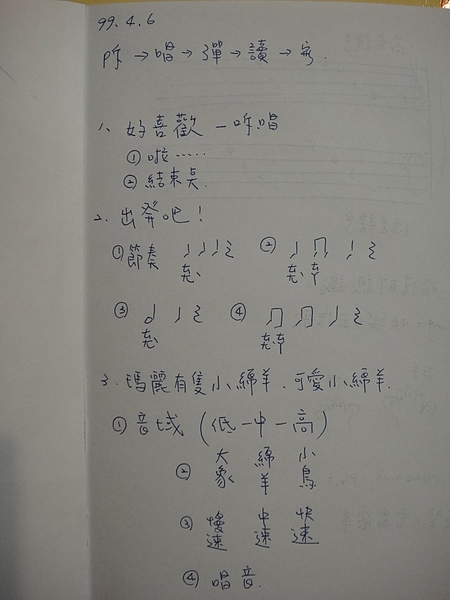 99.4.6
→唱→彈→讀→
1、好喜歡—听唱
①啦……
②結束
2、出發吧！
①節奏 ②
③ ④
3、瑪麗有隻小綿羊、可愛小綿羊.
①音域(低—中—高)
②大象 綿羊 小鳥
③慢速 中速 快速
④唱音.